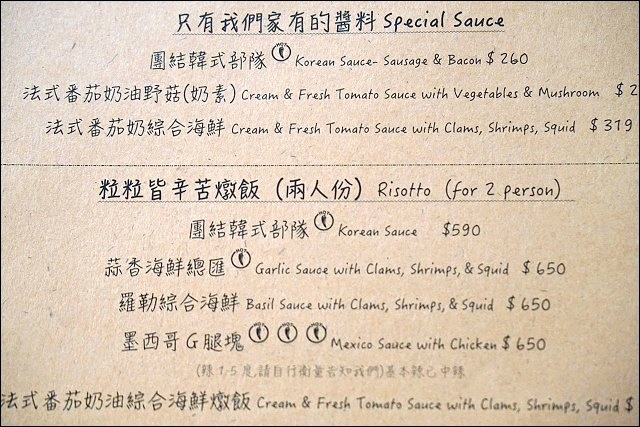 只有我們家有的醬料 Special Sauce
團結韓式部隊 Korean Sauce- Sausage & Bacon $ 260
法式番茄奶油野菇(奶素) Cream & Fresh Tomato Sauce with Vegetables & Mushroom $ 2
法式番茄奶綜合海鮮 Cream & Fresh Tomato Sauce with Clams, Shrimps, Squid $ 319
粒粒皆辛苦燉飯 (兩人份) Risotto (for 2 person)
團結韓式部隊 HOT Korean Sauce $590
蒜香海鮮總匯 HOT Garlic Sauce with Clams, Shrimps, & Squid $ 650
羅勒綜合海鮮 Basil Sauce with Clams, Shrimps, & Squid $ 650
墨西哥G腿塊 HOT HOT HOT Mexico Sauce with Chicken $ 650
(辣 1-5 度,請自行衡量告知我們)基本辣已中辣
法式番茄奶油綜合海鮮燉飯 Cream & Fresh Tomato Sauce with Clams, Shrimps, Squid $